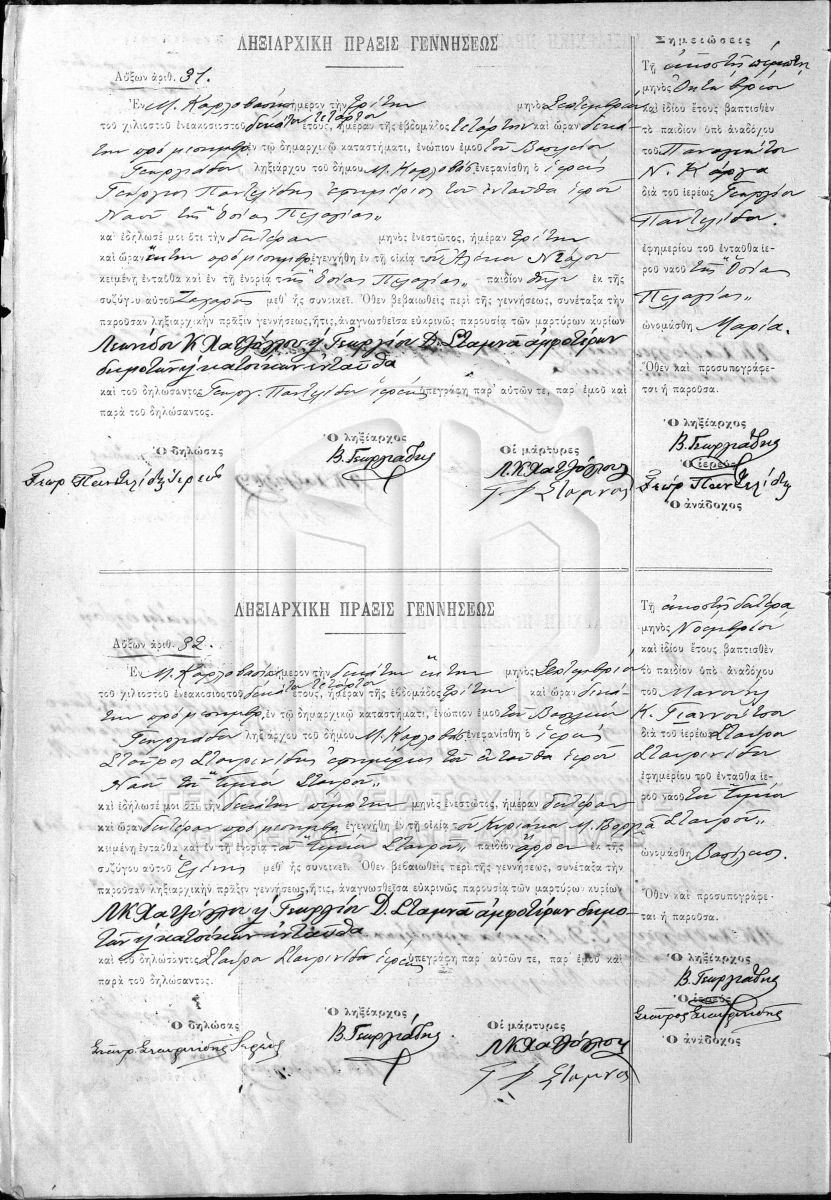 ΛΗΞΙΑΡΧΙΚΗ ΠΡΑΞΙΣ ΓΕΝΝΗΣΕΩΣ
Αὔξων ἀριθ. 31.
Ἐν Μ. Καρλοβασίῳ σήμερον τὴν τρίτην μηνὸς Σεπτεμβρίου
τοῦ χιλιοστοῦ ἐνεακοσιοστοῦ δεκάτου τετάρτου ἔτους, ἡμέραν τῆς ἑβδομάδος τετάρτην καὶ ὥραν δεκά-
την πρὸ μεσημβρ. ἐν τῷ δημαρχικῷ καταστήματι, ἐνώπιον ἐμοῦ τοῦ Βασιλείου
Γεωργιάδου ληξιάρχου τοῦ δήμου Μ. Καρλοβάσ ἐνεφανίσθη ὁ ἱερεὺς
Γεώργιος Παντελίδης ἐφημέριος τοῦ ἐνταῦθα ἱεροῦ
Ναοῦ τῆς "Ὁσίας Πελαγίας"
καὶ ἐδήλωσέ μοι ὅτι τὴν δευτέραν μηνὸς ἐνεστῶτος, ἡμέραν τρίτην
καὶ ὥραν ἕκτην πρὸ μεσημβρ. ἐγεννήθη ἐν τῇ οἰκίᾳ τοῦ
κειμένῃ ἐνταῦθα καὶ ἐν τῇ ἐνορίᾳ τῆς "Ὁσίας Πελαγίας" παιδίον θῆλυ ἐκ τῆς
συζύγου αὐτοῦ Ζαχαρῶς μεθ' ἧς συνοικεῖ. Ὅθεν βεβαιωθεὶς περὶ τῆς γεννήσεως, συνέταξα τὴν
παροῦσαν ληξιαρχικὴν πρᾶξιν γεννήσεως, ἥτις, ἀναγνωσθεῖσα εὐκρινῶς παρουσίᾳ τῶν μαρτύρων κυρίων
Λεωνίδου Κ Χατζόγλου ϗ Γεωργίου Δ. Σταμνᾶ ἀμφοτέρων
δημοτῶν ϗ κατοίκων ἐνταῦθα
καὶ τοῦ δηλώσαντος Γεωργ. Παντελίδου ἱερέως ὑπεγράφη παρ' αὐτῶν τε, παρ' ἐμοῦ καὶ
παρὰ τοῦ δηλώσαντος.
Ὁ δηλώσας
Γεωρ Παντελίδης Ἱερεὺς
Ὁ ληξίαρχος
Β. Γεωργιάδης
Οἱ μάρτυρες
Λ.Κ Χατζόγλου
Γ Δ Σταμνας
Σημειώσεις
Τῇ εἰκοστῇ πέμπτῃ
μηνὸς Ὀκτωβρίου
καὶ ἰδίου ἔτους βαπτισθὲν
τὸ παιδίον ὑπὸ ἀναδόχου
τοῦ Παναγιώτου
Ν. Κάργα
διὰ τοῦ ἱερέως Γεωργίου
Παντελίδου.
ἐφημερίου τοῦ ἐνταῦθα ἱε-
ροῦ ναοῦ τῆς "Ὁσίας
Πελαγίας"
ὠνομάσθη Μαρία.
Ὅθεν καὶ προσυπογράφε-
ται ἡ παροῦσα.
Ὁ ληξίαρχος
Β. Γεωργιάδης
Ὁ ἱερεύς
Γεωρ Παντελίδης
Ὁ ἀνάδοχος
ΛΗΞΙΑΡΧΙΚΗ ΠΡΑΞΙΣ ΓΕΝΝΗΣΕΩΣ
Αὔξων ἀριθ. 32.
Ἐν Μ. Καρλοβασίῳ σήμερον τὴν δεκάτην ἕκτην μηνὸς Σεπτεμβρίου
τοῦ χιλιοστοῦ ἐνεακοσιοστοῦ δεκάτου τετάρτου ἔτους, ἡμέραν τῆς ἑβδομάδος τρίτην καὶ ὥραν δεκά-
την πρὸ μεσημβρ. ἐν τῷ δημαρχικῷ καταστήματι, ἐνώπιον ἐμοῦ τοῦ Βασιλείου
Γεωργιάδου ληξιάρχου τοῦ δήμου Μ. Καρλοβάσ ἐνεφανίσθη ὁ ἱερεὺς
Σταῦρος Σταυρινίδης ἐφημέριος τοῦ ἐνταῦθα ἱεροῦ
Ναοῦ τοῦ "Τιμίου Σταυροῦ"
καὶ ἐδήλωσέ μοι ὅτι τὴν δεκάτην πέμπτην μηνὸς ἐνεστῶτος, ἡμέραν δευτέραν
καὶ ὥραν δευτέραν πρὸ μεσημβρ. ἐγεννήθη ἐν τῇ οἰκίᾳ τοῦ Κυριάκου Μ. Βορρᾶ
κειμένῃ ἐνταῦθα καὶ ἐν τῇ ἐνορίᾳ τοῦ "Τιμίου Σταυροῦ" παιδίον ἄρρεν ἐκ τῆς
συζύγου αὐτοῦ Ἑλένης μεθ' ἧς συνοικεῖ. Ὅθεν βεβαιωθεὶς περὶ τῆς γεννήσεως, συνέταξα τὴν
παροῦσαν ληξιαρχικὴν πρᾶξιν γεννήσεως, ἥτις, ἀναγνωσθεῖσα εὐκρινῶς παρουσίᾳ τῶν μαρτύρων κυρίων
ΛΚ Χατζόγλου ϗ Γεωργίου Δ. Σταμνᾶ ἀμφοτέρων δημο-
τῶν ϗ κατοίκων ἐνταῦθα
καὶ τοῦ δηλώσαντος Σταύρου Σταυρινίδου ἱερέως ὑπεγράφη παρ' αὐτῶν τε, παρ' ἐμοῦ καὶ
παρὰ τοῦ δηλώσαντος.
Ὁ δηλώσας
Σταυρ Σταυρινίδης Ἱερεὺς
Ὁ ληξίαρχος
Β. Γεωργιάδης.
Οἱ μάρτυρες
ΛΚ Χατζόγλου
Γ Δ Σταμνας
Τῇ εἰκοστῇ δευτέρᾳ
μηνὸς Νοεμβρίου
καὶ ἰδίου ἔτους βαπτισθὲν
τὸ παιδίον ὑπὸ ἀναδόχου
τοῦ Μανουὴλ
Κ. Γιαννούτσου
διὰ τοῦ ἱερέως Σταύρου
Σταυρινίδου
ἐφημερίου τοῦ ἐνταῦθα ἱε-
ροῦ ναοῦ τοῦ "Τιμίου
Σταυροῦ"
ὠνομάσθη Βασίλειος.
Ὅθεν καὶ προσυπογράφε-
ται ἡ παροῦσα.
Ὁ ληξίαρχος
Β. Γεωργιάδης
Ὁ ἱερεύς
Σταυρος Σταυρινίδης
Ὁ ἀνάδοχος